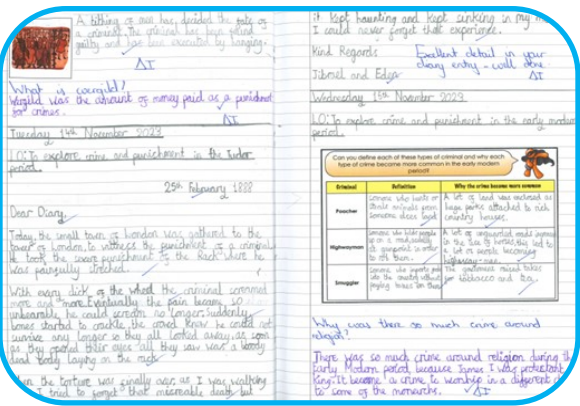 A tithing of men has decided the fate of
a criminal. The criminal has been found
guilty and has been executed by hanging.
ΔI
What is wergild?
Wergild was the amount of money paid as a punishment
for crimes.
ΔI
Tuesday 14th November 2023
LO: To explore crime and punishment in the Tudor
period.
25th February 1888
Dear Diary,
Today, the small town of London was gathered to the
tower of London, to witness the punishment of a criminal
He took the severe punishment of the Rack where he
was painfully stretched.
With every click of the wheel the criminal screamed
more and more. Eventually the pain became so
unbearable, he could scream no longer. Suddenly
bones started to crackle, the crowd knew he could not
survive any longer so they all looked away, as soon
as they opened their eyes all they saw was a bloody
dead body laying on the rack.
When the torture was finally over, as I was walking
I tried to forget that miserable death but
it kept haunting and kept sinking in my
I could never forget that experience.
Kind Regards
Jibreel and Edgar
Excellent detail in your
diary entry - well done.
ΔI
Wednesday 15th November 2023
LO: To explore crime and punishment in the early modern
period.
Can you define each of these types of criminal and why each
type of crime became more common in the early modern
period?
Criminal Definition Why the crime became more common
Poacher
Someone who hunts or
steals animals from
someone elses land
A lot of land was enclosed as
huge parks attached to rich
country houses.
Highwayman
Someone who holds people
up on a road, usually
at gunpoint in order
to rob them.
A lot of unguarded roads
to the use of horses, this led to
a lot of people becoming
highway-men.
Smuggler
Someone who imports goods
into the country without
paying taxes on them
The government raised taxes
for tobacco and tea.
Why was there so much crime around
religion?
There was so much crime around religion during the
Early Modern period, because James I was protestant
King. It became a crime to worship in a different
to some of the monarchs.
ΔI